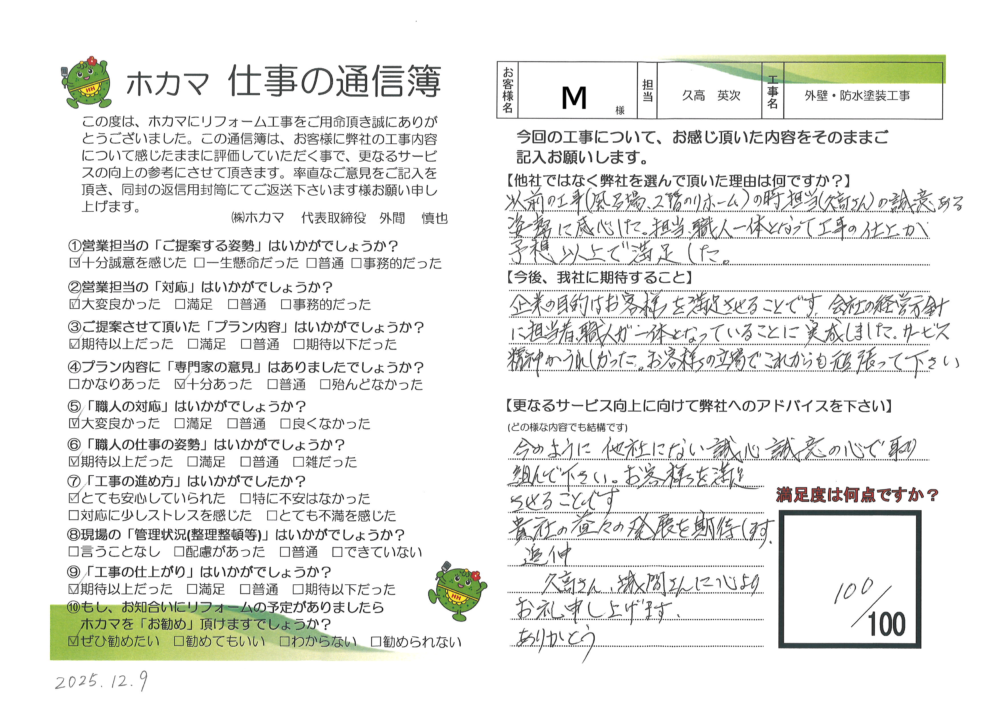 ホカマ 仕事の通信簿
この度は、ホカマにリフォーム工事をご用命頂き誠にありが
とうございました。この通信簿は、お客様に弊社の工事内容
について感じたままに評価していただく事で、更なるサービ
スの向上の参考にさせて頂きます。率直なご意見をご記入を
頂き、同封の返信用封筒にてご返送下さいます様お願い申し
上げます。
㈱ホカマ 代表取締役 外間 慎也
①営業担当の「ご提案する姿勢」はいかがでしょうか？
☑十分誠意を感じた □一生懸命だった □普通 □事務的だった
②営業担当の「対応」はいかがでしょうか？
☑大変良かった □満足 □普通 □事務的だった
③ご提案させて頂いた「プラン内容」はいかがでしょうか？
☑期待以上だった □満足 □普通 □期待以下だった
④プラン内容に「専門家の意見」はありましたでしょうか？
□かなりあった ☑十分あった □普通 □殆んどなかった
⑤「職人の対応」はいかがでしょうか？
☑大変良かった □満足 □普通 □良くなかった
⑥「職人の仕事の姿勢」はいかがでしょうか？
☑期待以上だった □満足 □普通 □雑だった
⑦「工事の進め方」はいかがでしたか？
☑とても安心していられた □特に不安はなかった
□対応に少しストレスを感じた □とても不満を感じた
⑧現場の「管理状況(整理整頓等)」はいかがでしょうか？
□言うことなし □配慮があった □普通 □できていない
⑨「工事の仕上がり」はいかがでしょうか？
☑期待以上だった □満足 □普通 □期待以下だった
⑩もし、お知合いにリフォームの予定がありましたら
ホカマを「お勧め」頂けますでしょうか？
☑ぜひ勧めたい □勧めてもいい □わからない □勧められない
2025.12.9
お客様名 M 様 担当 久高 英次 工事名 外壁・防水塗装工事
今回の工事について、お感じ頂いた内容をそのままご
記入お願いします。
【他社ではなく弊社を選んで頂いた理由は何ですか？】
以前の工事(風呂場、2階のリホーム)の時担当(久高さん)の誠意ある
姿勢に感心した。担当、職人一体となって工事の仕上が
予想以上で満足した。
【今後、我社に期待すること】
企業の目的はお客様を満足させることです。会社の経営方針
に担当者、職人が一体となっていることに実感しました。サービス
精神がうれしかった。お客様の立場でこれからも頑張って下さい
【更なるサービス向上に向けて弊社へのアドバイスを下さい】
(どの様な内容でも結構です)
今のように他社にない誠心誠意の心で取り
組んで下さい。お客様を満足
させることです
貴社の益々の発展を期待します。
追伸
久高さん、城間さんに心より
お礼申し上げます。
ありがとう
満足度は何点ですか？
100/100